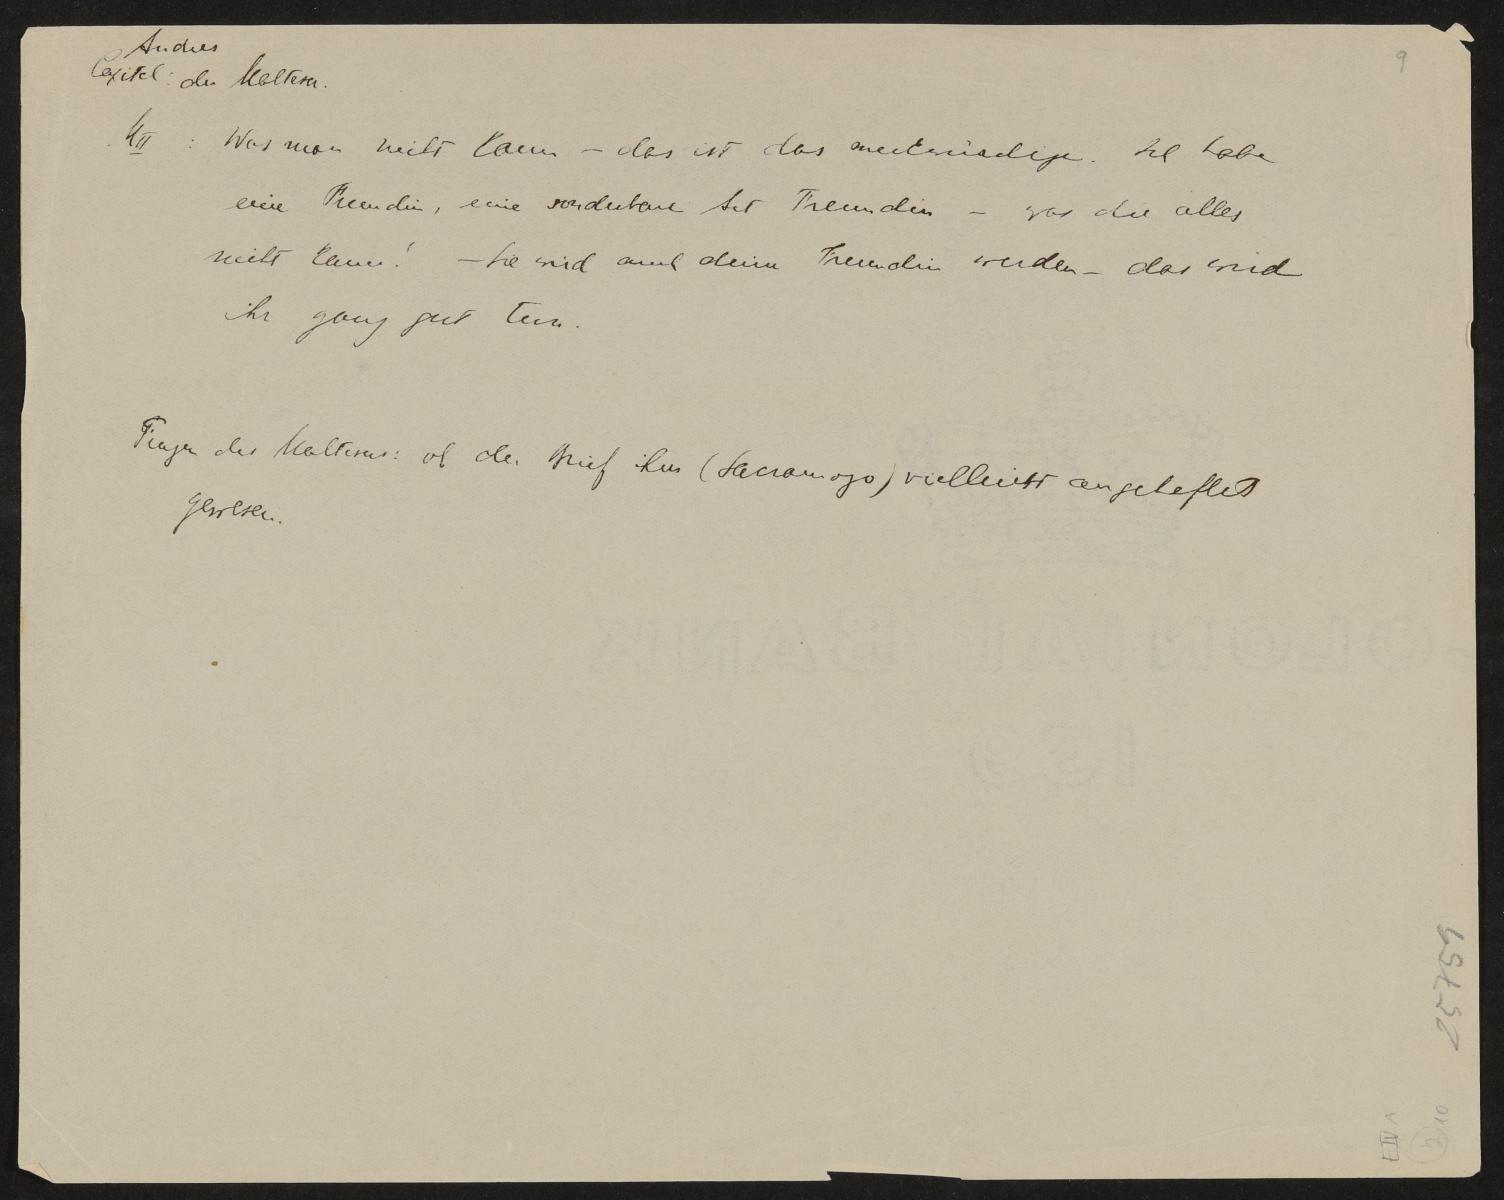 Andres
9
Capitel: der Malteser.
M II : Was man nicht kann – das ist das merkwürdige. Ich habe
eine Freundin, eine sonderbare Art Freundin – was die alles
nicht kann! – Sie wird auch deine Freundin werden – das wird
ihr ganz gut tun.
Fragen des Maltesers: ob der Brief ihm (Sacramozo) vielleicht angeheftet
gewesen.
OLONIAL BANK
139
25759
E IV A
10